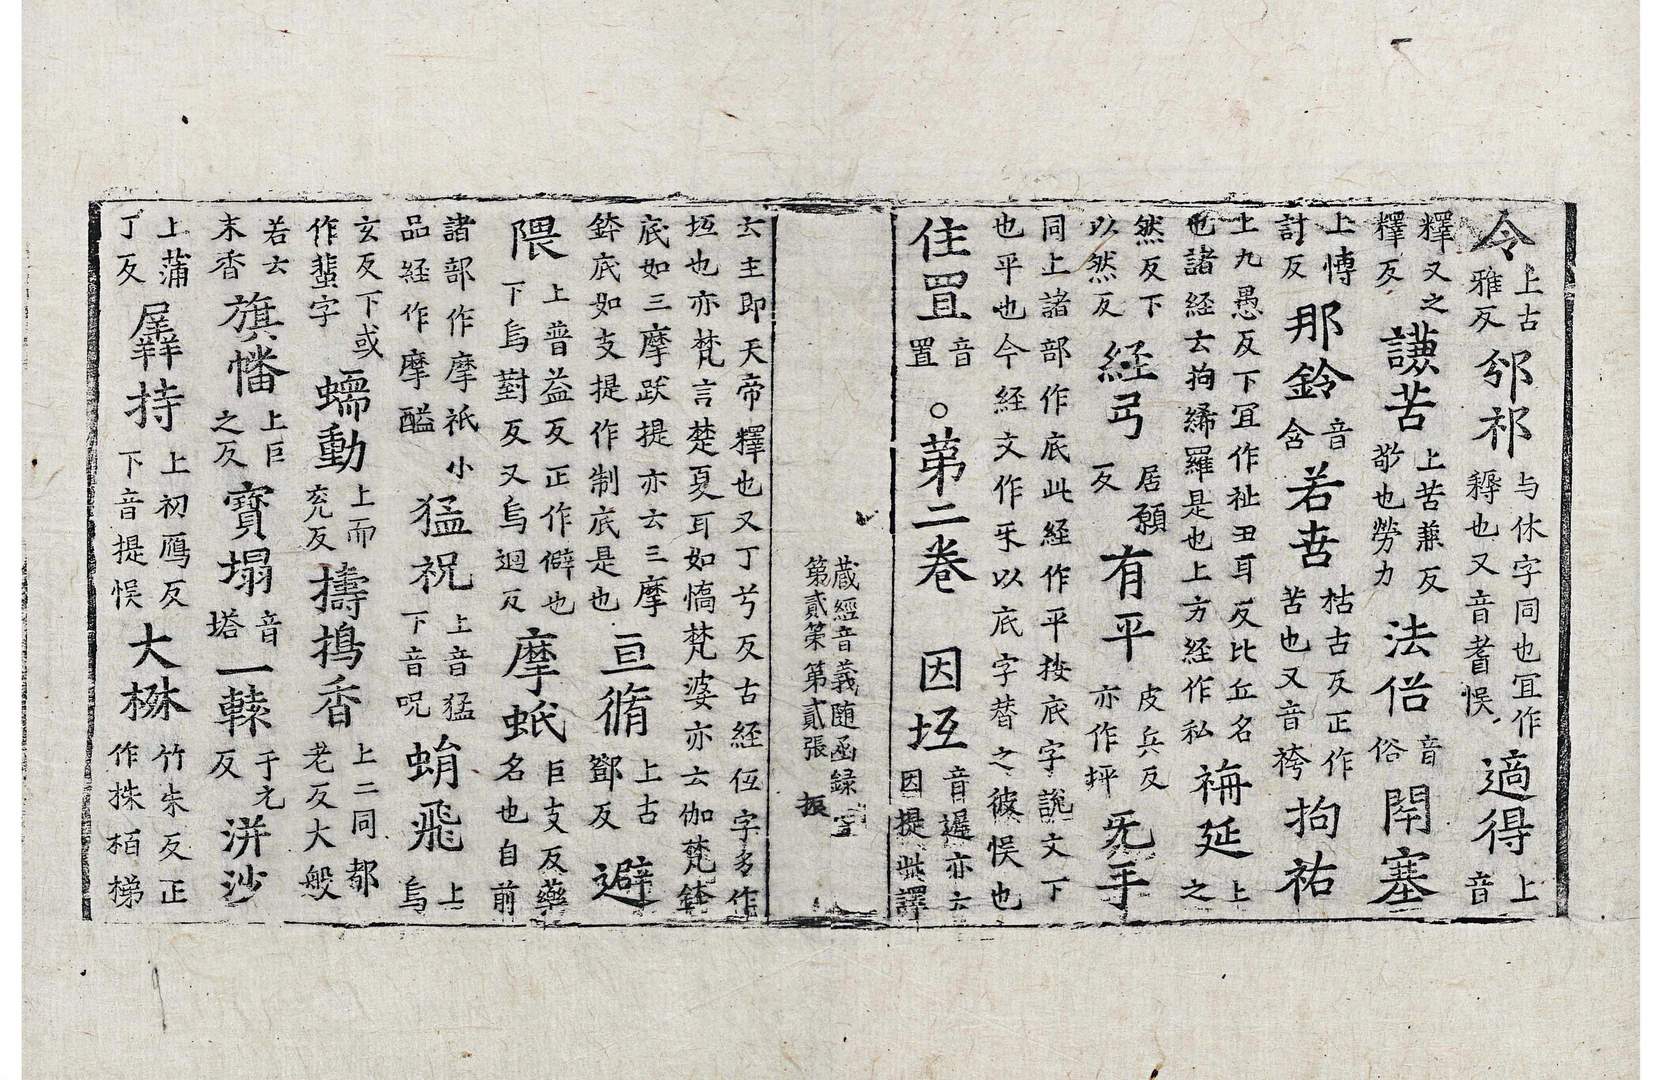 令上古雅反邠祁与休字同也冝作耨也又音耆悮適得上音
釋又之釋反謙苦上苦兼反敬也勞力法俗音俗閇塞
上愽計反那鈴音含若㐂枯古反正作苦也又音袴拘祐
上九愚反下冝作祉丑耳反比丘名也諸經云拘絺羅是也上方經作私延上之
然反下以然反經弓居頋反有平皮兵反亦作坪旡手
同上諸部作底此經作平按底字說文丁也平也今經文作乎以底字替之彼悮也
住置音置。苐二卷 因坘音遲亦云因提此譯
藏經音義随函録
第貳第第貳張 振
云主即天帝釋也又丁兮反古經伍字多作坘也亦梵言楚夏耳如憍梵婆亦云伽梵鉢
底如三摩跋提亦云三摩鉢底如支提作制底是也亘循上古鄧反避
隈上普益反正作僻也下烏對反又烏迴反摩蚔巨支反藥名也自前
諸部作摩祇小品經作摩醯猛祝上音猛下音呪蜎飛上烏
玄反下或作蜚字蠕動上而兖反擣搗香上二同都老反大般
若云末香旗幡上巨之反寳塌音塔一于元反洴沙
上蒲丁反羼持上初鴈反下音提悮大竹朱反正作株栢梯